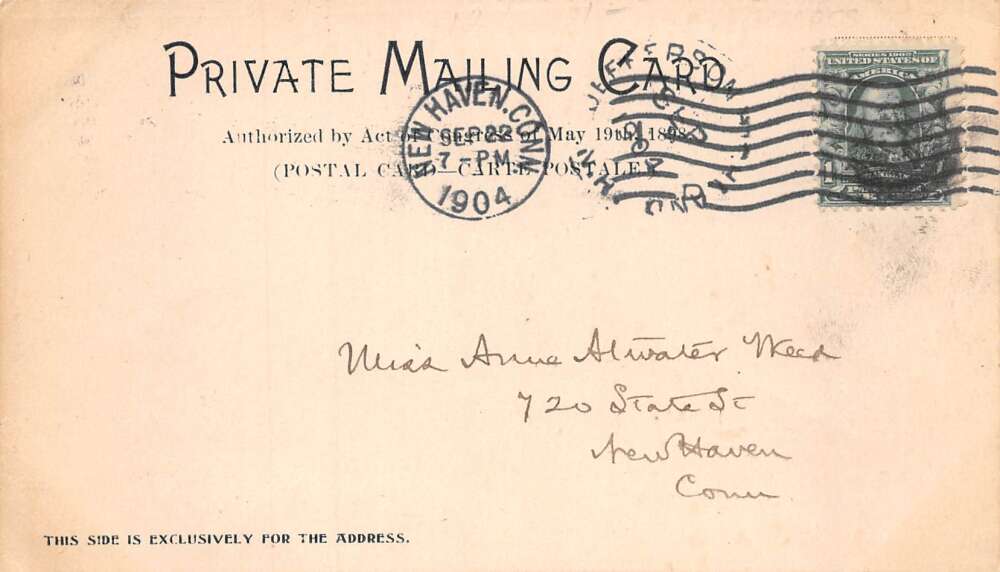 PRIVATE MAILING CARD
Authorized by Act of Congress of May 19th, 1898.
(POSTAL CARD—CARTE POSTALE)
NEW HAVEN, CONN.
SEP 22
7-PM
1904
JEFFERSON
N.H.
SERIES 1902
UNITED STATES OF
AMERICA
1
Miss Anne Atwater Weed
720 State St
New Haven
Conn
THIS SIDE IS EXCLUSIVELY FOR THE ADDRESS.